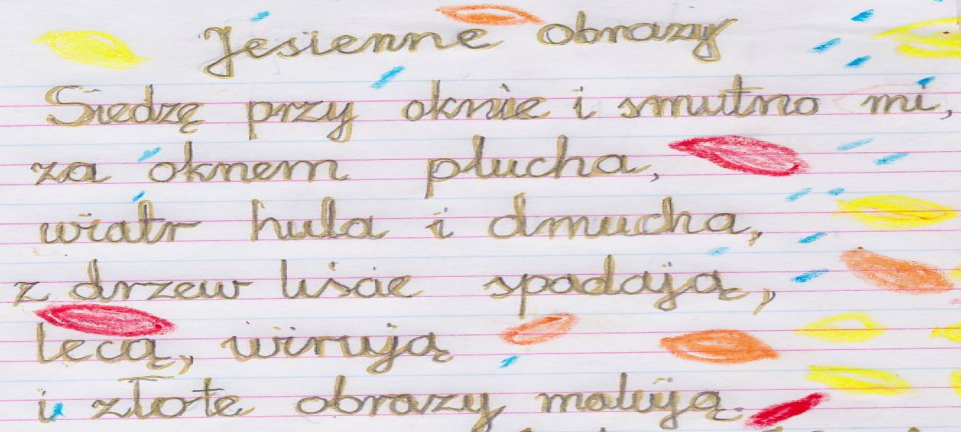 Jesienne obrazy
Siedzę przy oknie i smutno mi,
za oknem plucha,
wiatr hula i dmucha,
z drzew liście spadają,
lecą, wirują
i złote obrazy malują.